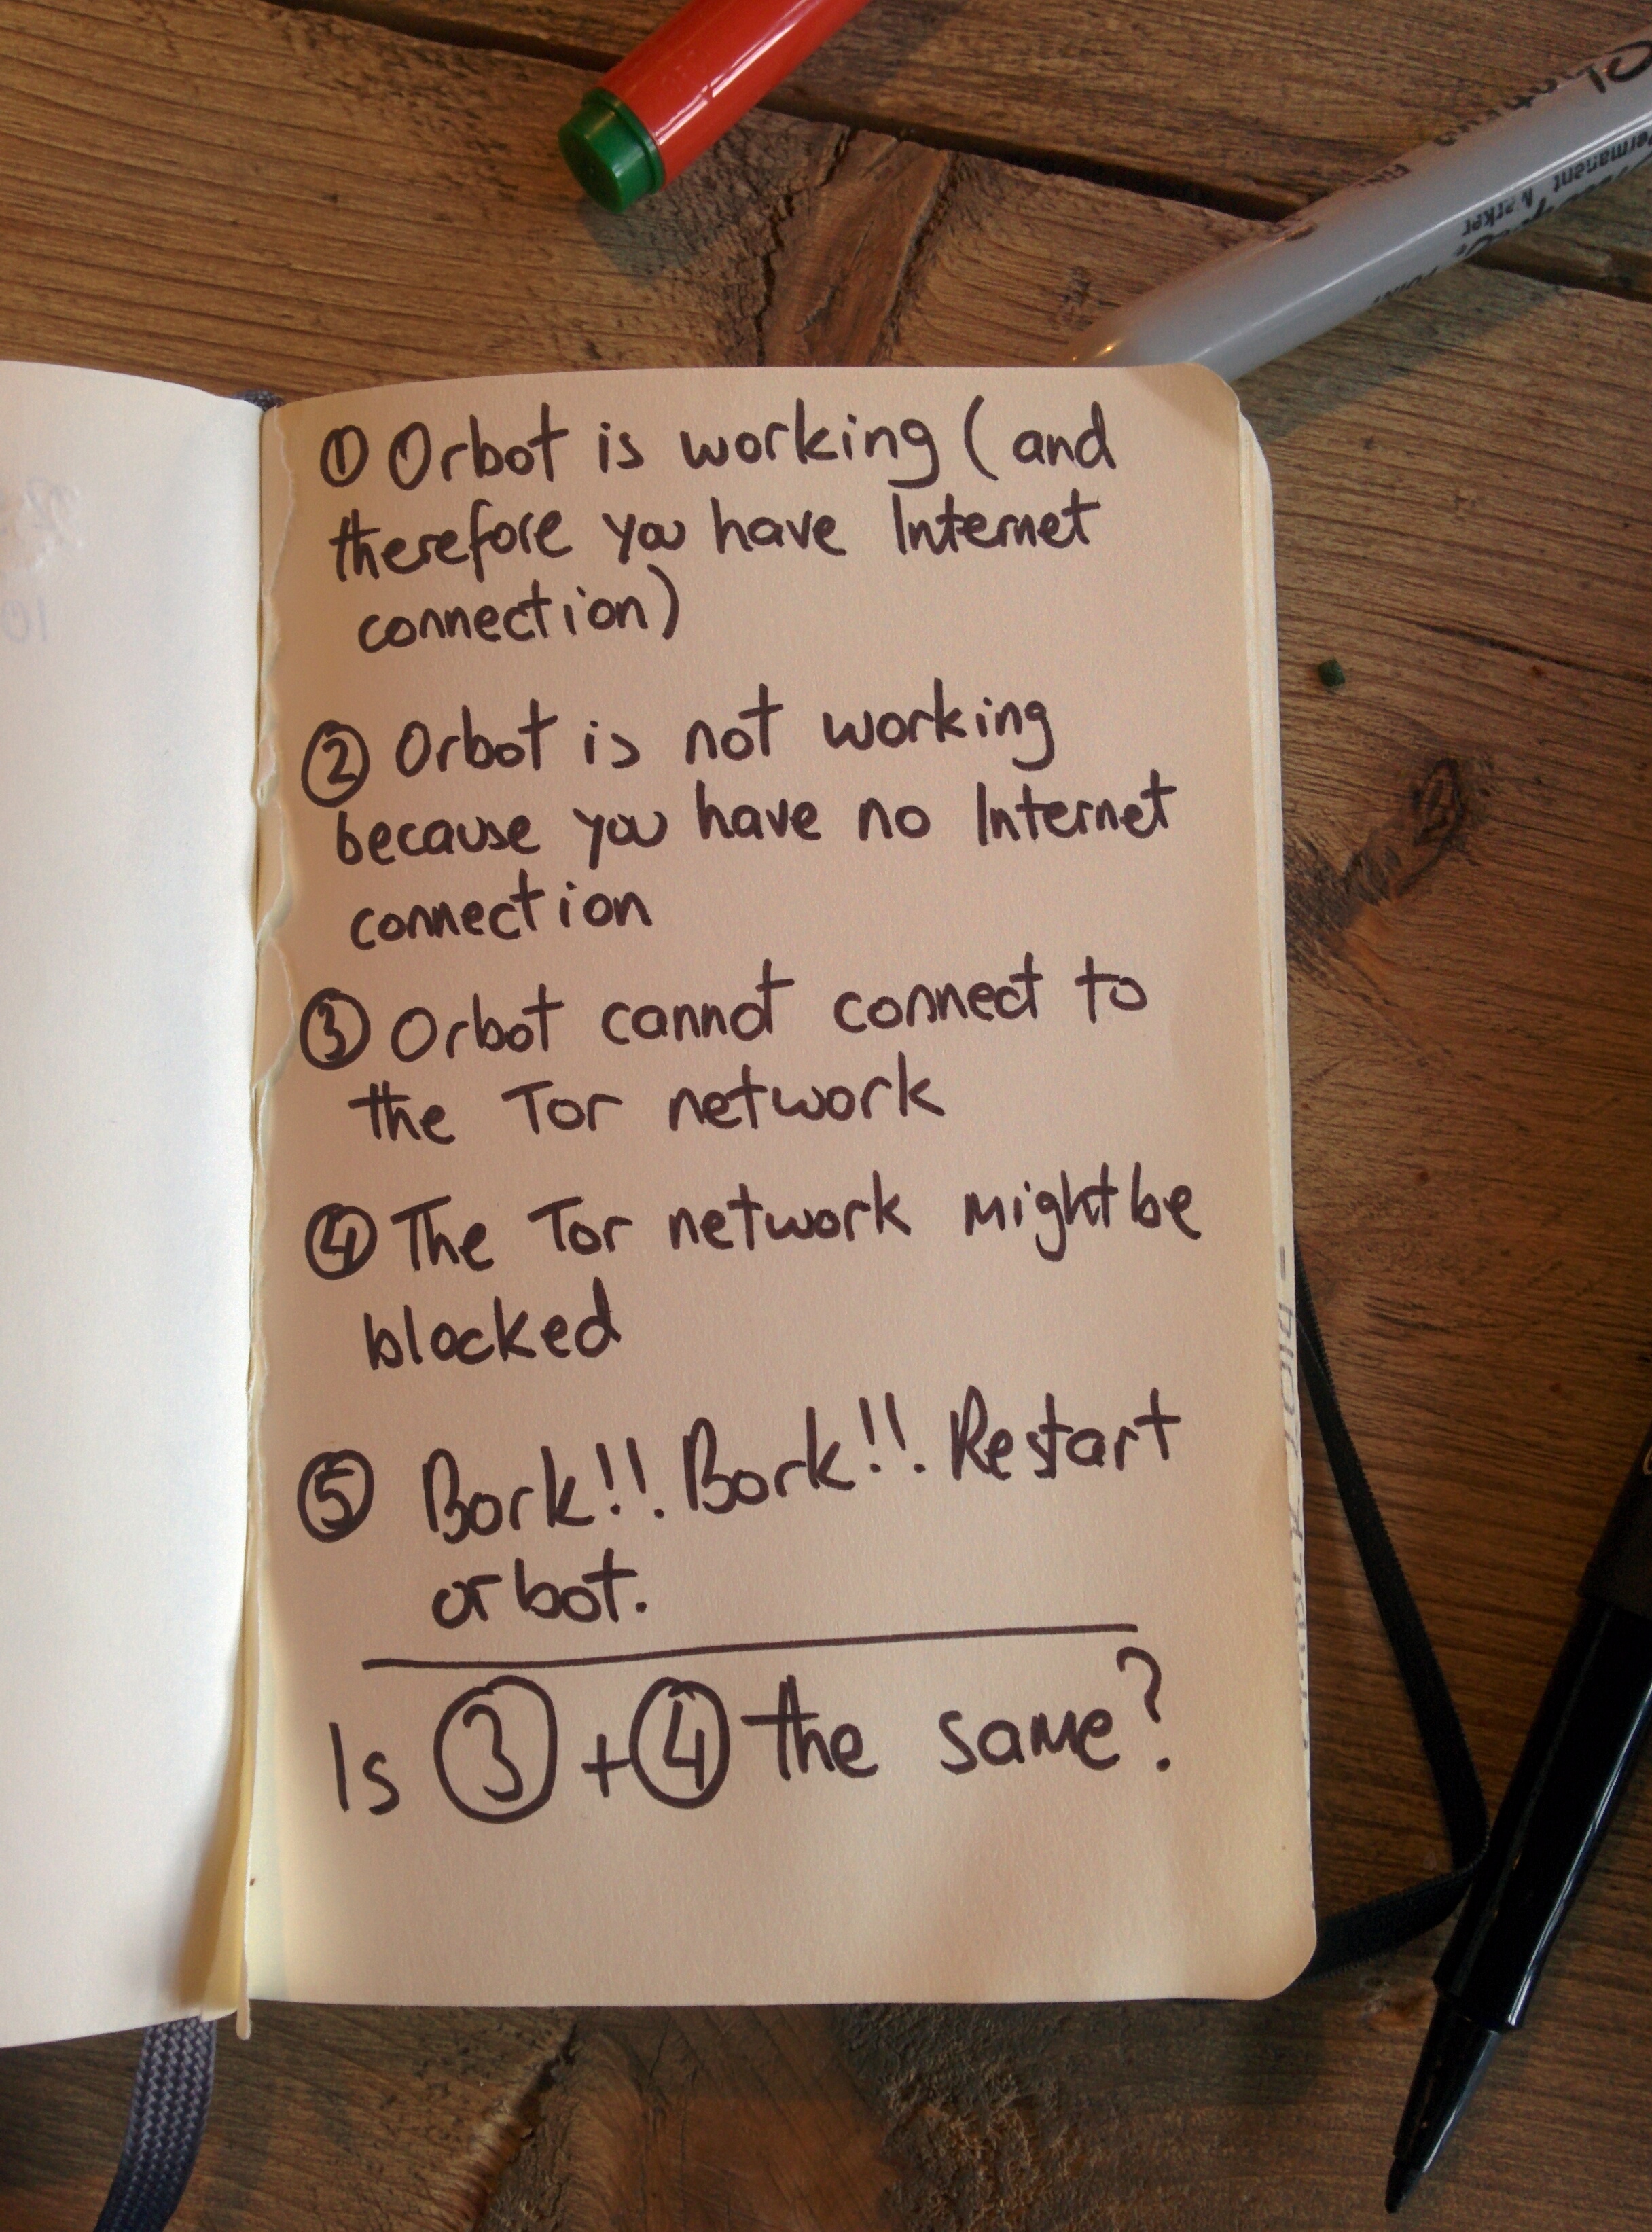 ① Orbot is working (and
therefore you have Internet
connection)
② Orbot is not working
because you have no Internet
connection
③ Orbot cannot connect to
the Tor network
④ The Tor network might be
blocked
⑤ Bork!!. Bork!!. Restart
orbot.
Is ③ + ④ the same?
Permanent
Marker